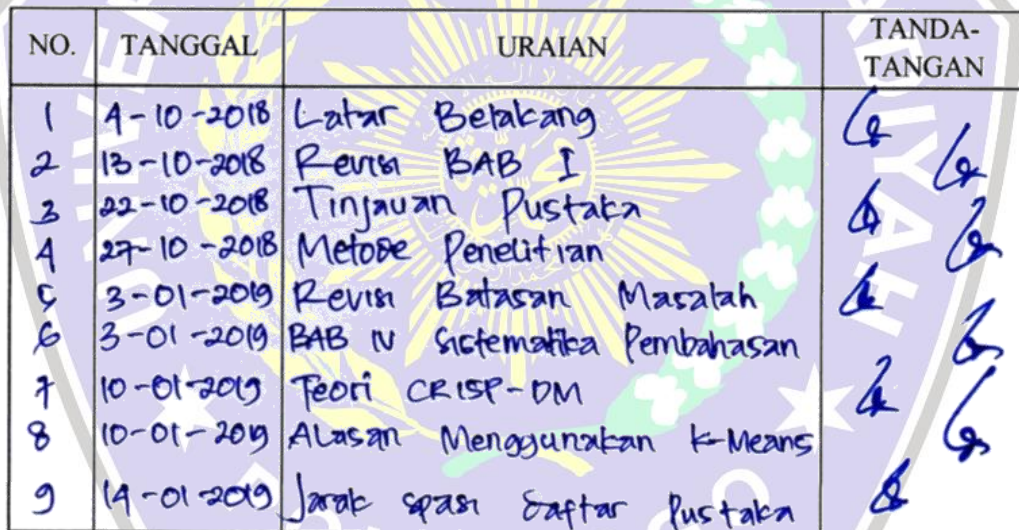 NO. TANGGAL URAIAN TANDA-TANGAN
1 4-10-2018 Latar Belakang
2 13-10-2018 Revisi BAB I
3 22-10-2018 Tinjauan Pustaka
4 27-10-2018 Metode Penelitian
5 3-01-2019 Revisi Batasan Masalah
6 3-01-2019 BAB IV Sistematika Pembahasan
7 10-01-2019 Teori CRISP-DM
8 10-01-2019 Alasan Menggunakan K-Means
9 14-01-2019 Jarak spasi Daftar Pustaka